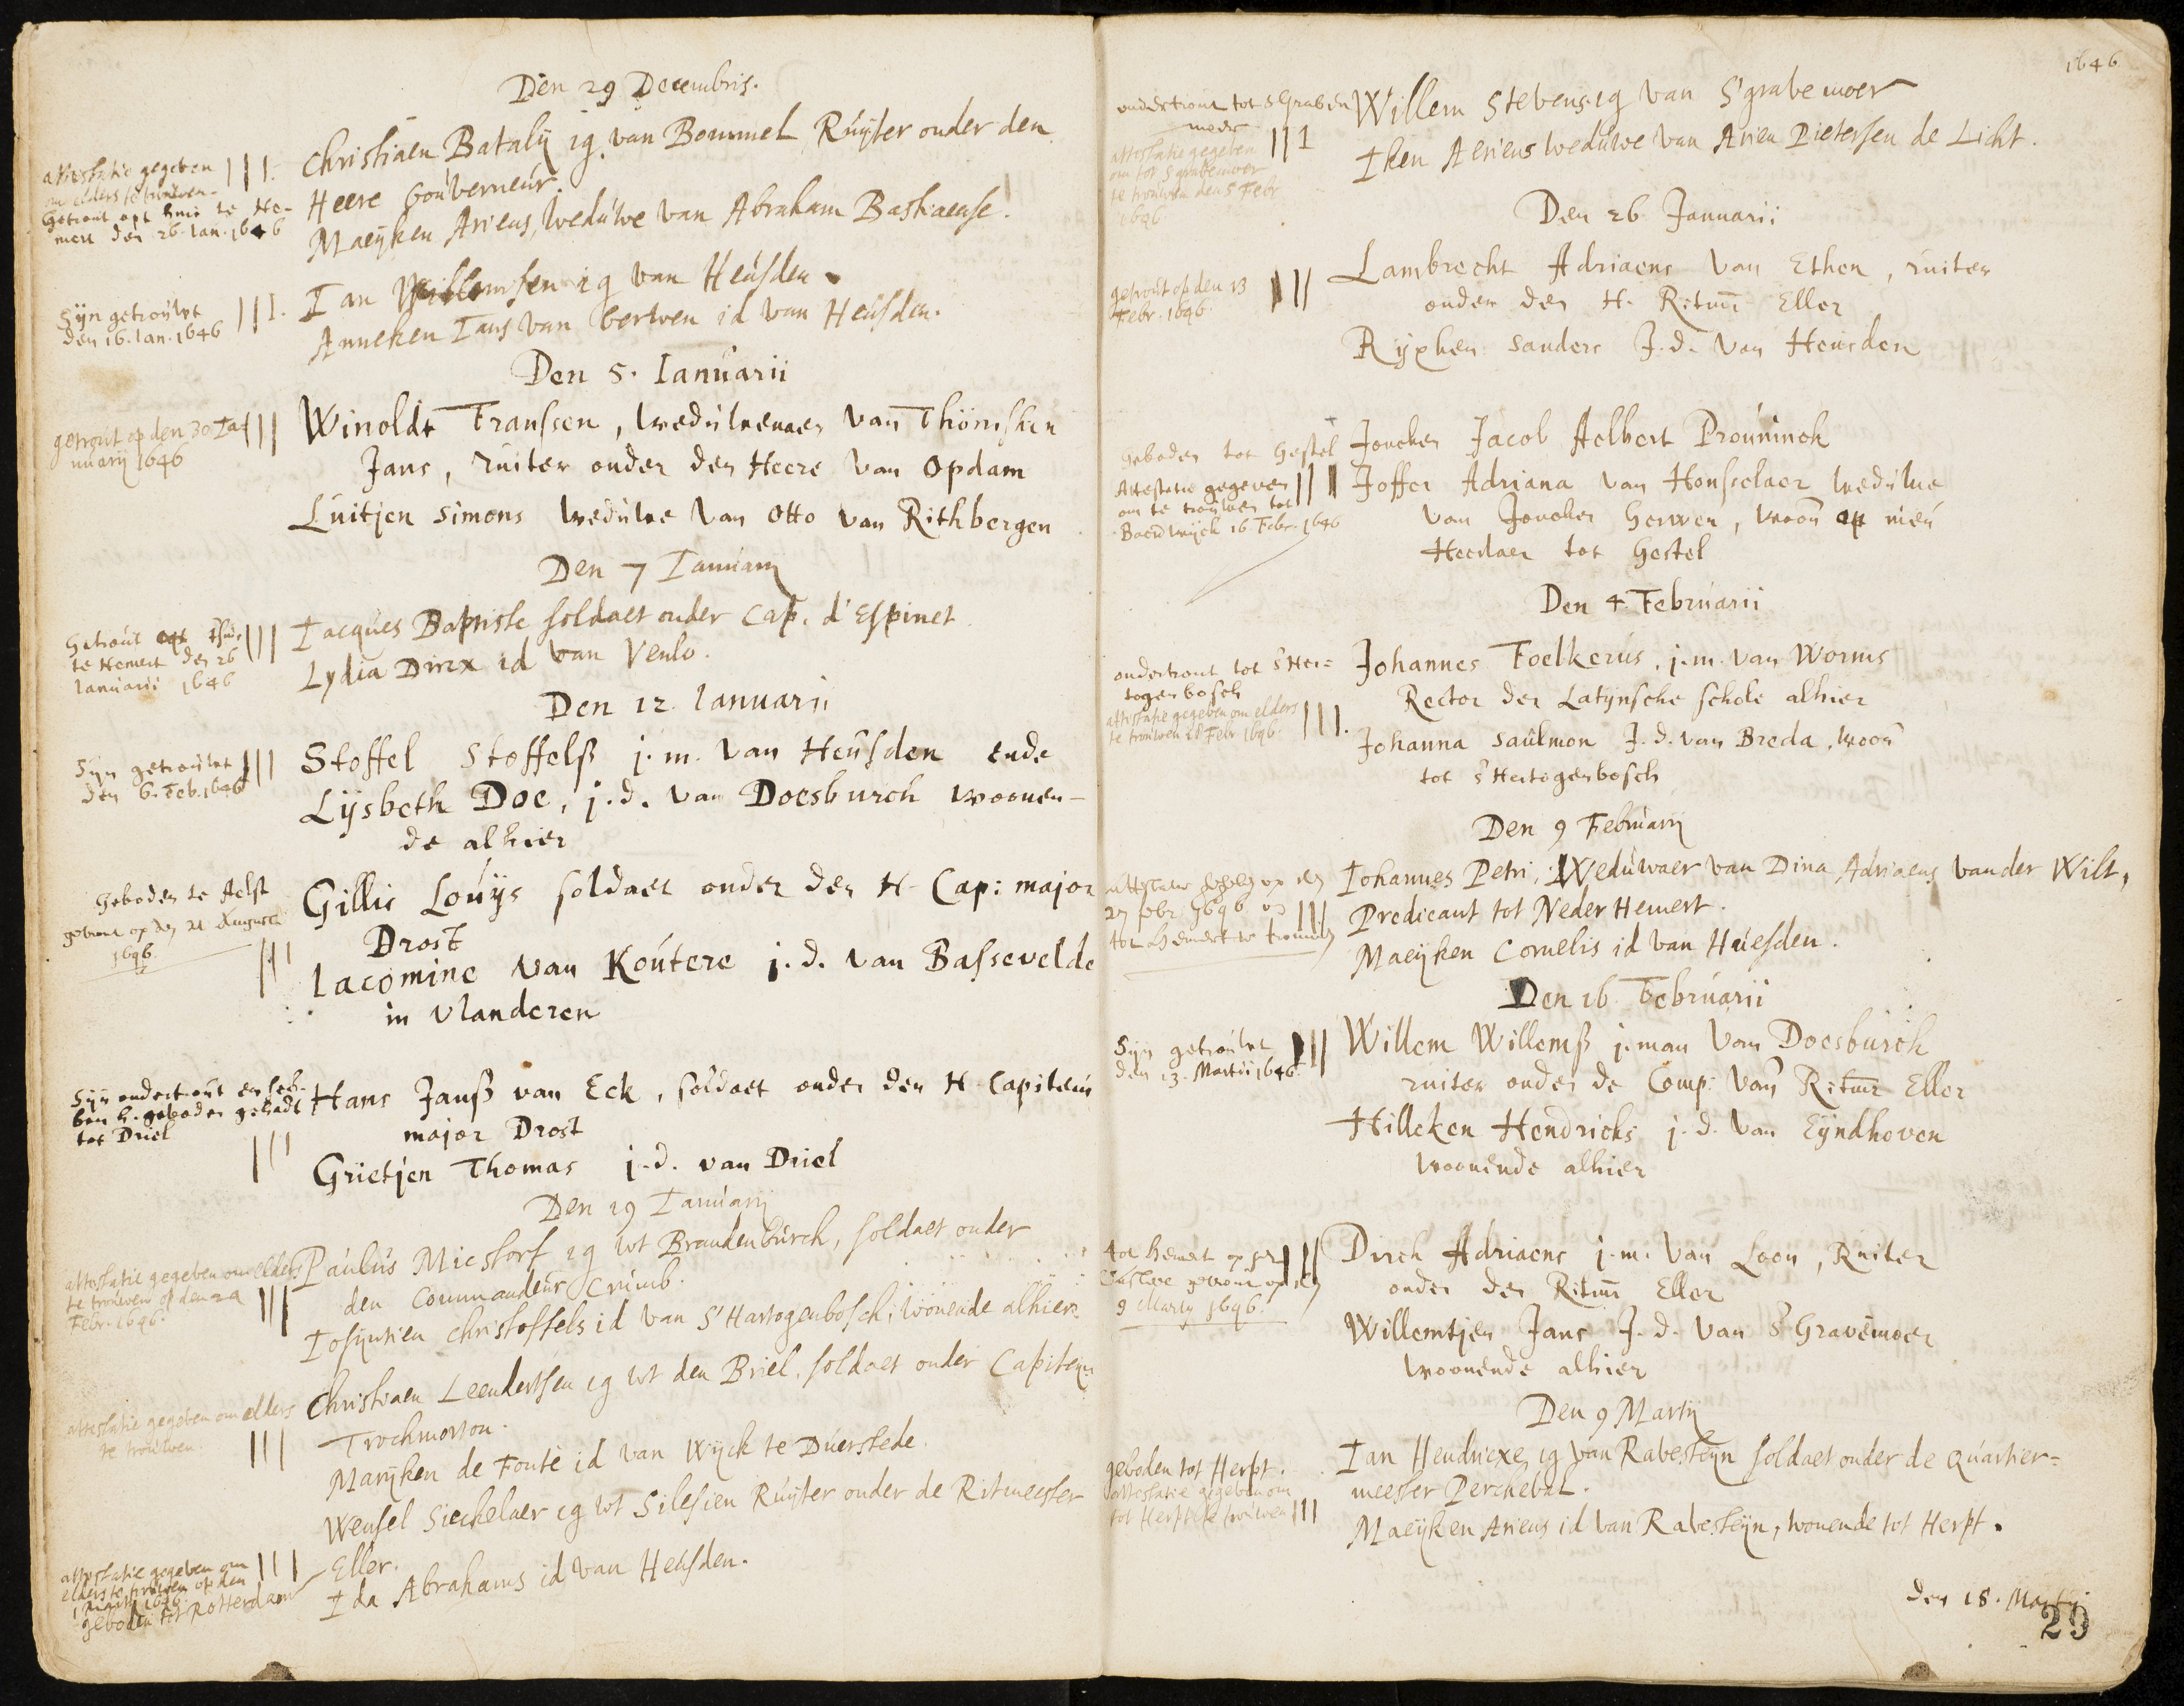 Den 29 Decembris.
attestatie gegeven
om elders te trouwen.
Getrout opt huis te He-
mert den 26. Ian. 1646
Christiaen Bataly ig. van Bommel Ruyter onder den
Heere Gouverneur.
Maeyken Ariens, weduwe van Abraham Bastiaense.
Syn getrouwt
den 16. Ian. 1646
Ian Willemsen ig van Heusden.
Anneken Ians van berwen id van Heusden.
Den 5. Ianuarii
getrout op den 30 Ia-
nuarij 1646
Winoldt Franssen, weduwenaer van Thönisken
Jans, ruiter onder den Heere van Opdam
Luitjen Simons weduwe van Otto van Rithbergen
Den 7 Ianuarij
Getrout opt Thuis
te Hemert den 26
Ianuarii 1646
Iacques Baptiste soldaet onder Cap. d'Espinet
Lydia Dircx id van Venlo.
Den 12. Ianuarii
Syn getrouwt
den 6. Feb. 1646
Stoffel Stoffelß j.m. van Heusden ende
Lijsbeth Doe, j.d. van Doesburch woonen-
de alhier
Geboden te Aelst
getrout op den 21 Augusti
1646.
Gillis Louys soldaet onder den H. Cap: major
Drost
Iacomine van Koutere j.d. van Bassevelde
in Vlanderen
Syn ondertrout en heb-
ben h. geboden gehadt
tot Driel
Hans Janß van Eck, soldaet onder den H. Capitein
major Drost
Grietjen Thomas j.d. van Driel
Den 19 Ianuarij
attestatie gegeven om elders
te trouwen op den 20
Febr. 1646.
Paulus Micstorf ig wt Brandenburch, soldaet onder
den Commandeur Crumb.
Iosyntien Christoffels id van S'Hartogenbosch, wonende alhier.
attestatie gegeven om elders
te trouwen.
Christiaen Leendertsen ig wt den Briel, soldaet onder Capiteyn
Trochmorton.
Maryken de Fonte id van Wijck te Duerstede.
attestatie gegeven om
elders te trouwen op den
1 Martij 1646.
geboden tot Rotterdam
Wensel Sieckelaer ig wt Silesien Ruyter onder de Ritmeester
Eller.
Ida Abrahams id van Heusden.
1646
ondertrout tot sGraven
moer
attestatie gegeven
om tot Sgravemoer
te trouwen den 5 Febr
1646
Willem Stevens ig van S'gravemoer
Iken Aeriens weduwe van Arien Pietersen de Licht.
Den 26 Januarii
getrout op den 13
Febr. 1646.
Lambrecht Adriaens van Ethen, ruiter
onder den H. Ritmr Eller
Ryxken Sanders J.d. van Heusden
Geboden tot Gestel
Attestatie gegeven
om te trouwen tot
Baerdwijck 16 Febr. 1646
Joncker Jacob Aelbert Prouninck
Joffer Adriana van Honseelaer weduwe
van Joncker Gerwen, woon op nieu
Heerlaer tot Gestel
Den 4. Februarii
ondertrout tot s'Her=
togenbosch
attestatie gegeven om elders
te trouwen 28 Febr 1646.
Johannes Foelkerus, j.m. van Worms
Rector der Latynsche schole alhier
Johanna Saulmon J.d. van Breda, woon
tot s'Hertogenbosch
Den 9 Februarij
27 febr 1646
tot hemert te trouwen
Iohannes Petri, Weduwaer van Dina Adriaens vander Wilt,
Predicant tot Neder Hemert.
Maeyken Cornelis id van Huesden.
Den 16 Februarii
Syn getrouwt
den 13. Martii 1646.
Willem Willemß j.man van Doesburch
ruiter onder de Comp: van Ritmr Eller
Hilleken Hendricks j.d. van Eyndhoven
woonende alhier
tot hemert op het
Casteel getrout op den
9 Marty 1646.
Dirck Adriaens j.m. van Loon, Ruiter
onder den Ritmr Eller
Willemtjen Jans J.d. van s'Gravemoer
woonende alhier
Den 9 Martij
geboden tot Herpt.
attestatie gegeven om
tot Herpt te trouwen
Ian Hendricxe ig van Ravesteyn soldaet onder de Quartier=
meester Perchebal.
Maeyken Ariens id van Ravesteyn, wonende tot Herpt.
den 18. Martij
29